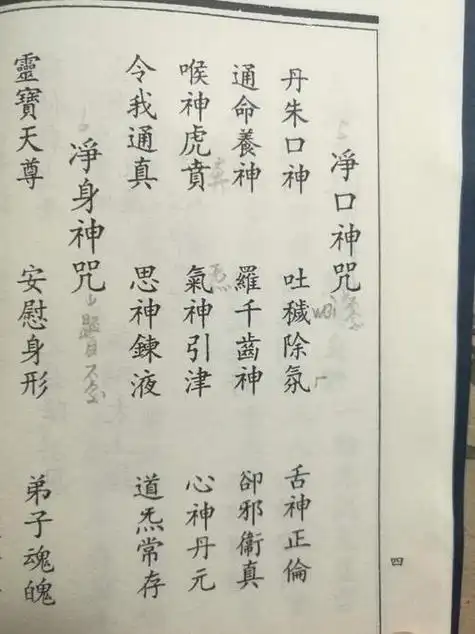 淨口神咒
丹朱口神 吐穢除氛 舌神正倫
通命養神 羅千齒神 卻邪衞真
喉神虎賁 氣神引津 心神丹元
令我通真 思神鍊液 道炁常存
淨身神咒
靈寶天尊 安慰身形 弟子魂魄
四